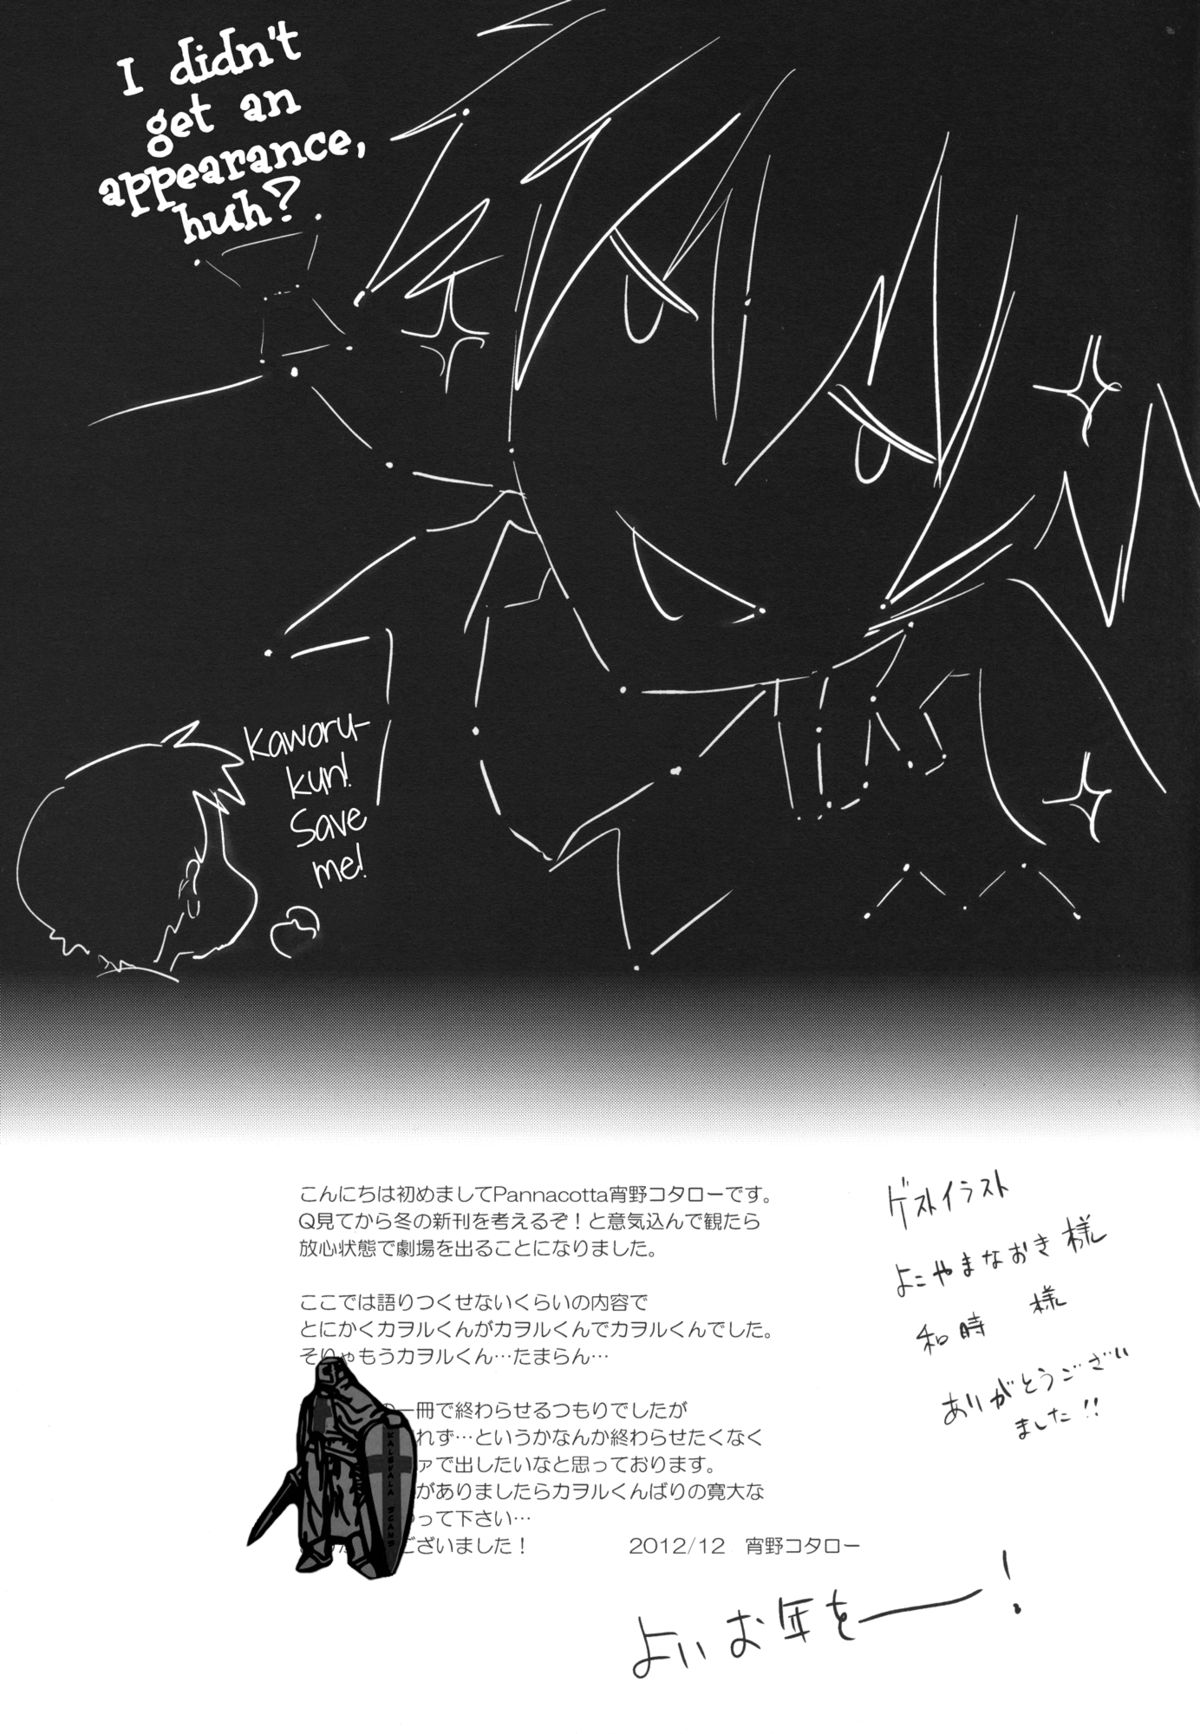 I didn't
get an
appearance,
huh?
Kaworu-
kun!
Save
me!
こんにちは初めましてPannacotta宵野コタローです。
Q見てから冬の新刊を考えるぞ！と意気込んで観たら
放心状態で劇場を出ることになりました。
ここでは語りつくせないくらいの内容で
とにかくカヲルくんがカヲルくんでカヲルくんでした。
そりゃもうカヲルくん…たまらん…
一冊で終わらせるつもりでしたが
れず…というかなんか終わらせたくなく
ァで出したいなと思っております。
がありましたらカヲルくんばりの寛大な
って下さい…
ございました！
2012/12 宵野コタロー
KALEVALA SCANS
ゲストイラスト
よこやまなおき様
和時 様
ありがとうござい
ました!!
よいお年をー！